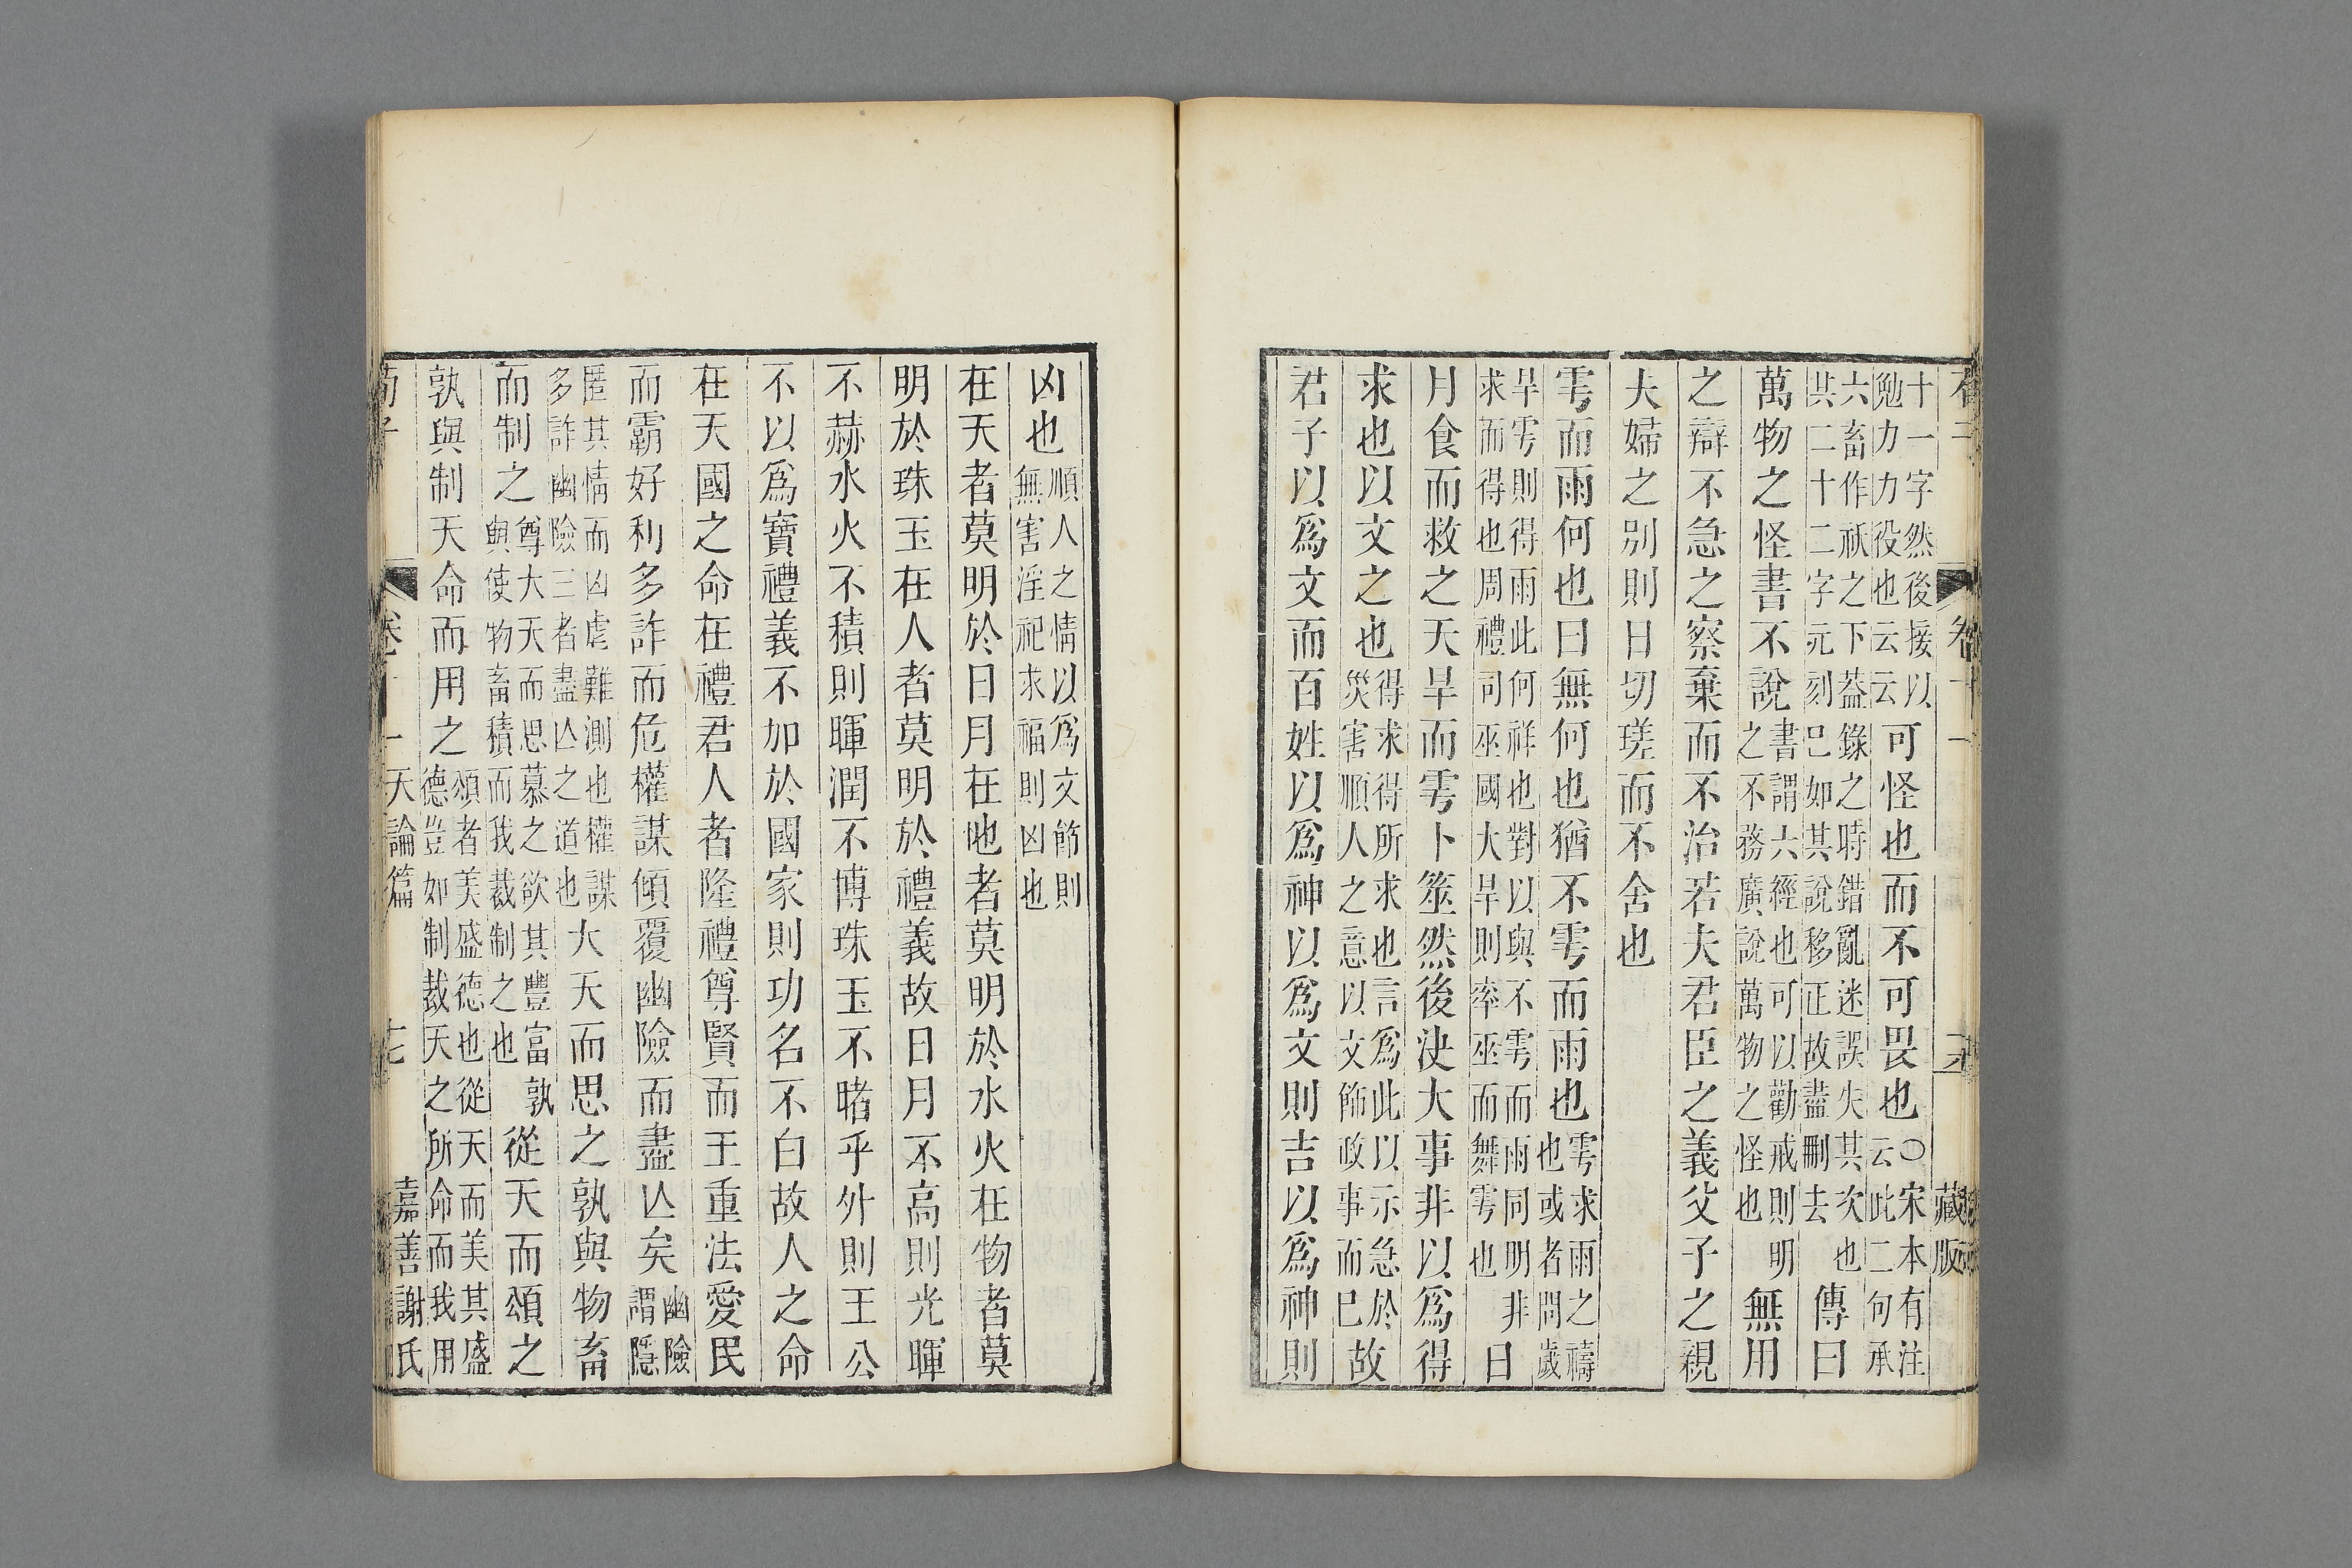 十一字然後接以
勉力力役也云云
可怪也而不可畏也
○宋本有注
云此二句承
六畜作祅之下蓋錄之時錯亂迷誤失其次也
其二十二字元刻已如其說移正故盡刪去
傳曰
萬物之怪書不說
書謂六經也可以勸戒則明
之不務廣說萬物之怪也
無用
之辯不急之察棄而不治若夫君臣之義父子之親
夫婦之別則日切瑳而不舍也
雩而雨何也曰無何也猶不雩而雨也
雩求雨之禱
也或者問歲
旱雩則得雨此何祥也對以與不雩而雨同明非
求而得也周禮司巫國大旱則率巫而舞雩也
日
月食而救之天旱而雩卜筮然後決大事非以爲得
求也以文之也
得求得所求也言爲此以示急於
災害順人之意以文飾政事而已
故
君子以爲文而百姓以爲神以爲文則吉以爲神則
凶也
順人之情以爲文飾則
無害淫祀求福則凶也
在天者莫明於日月在地者莫明於水火在物者莫
明於珠玉在人者莫明於禮義故日月不高則光暉
不赫水火不積則暉潤不博珠玉不睹乎外則王公
不以爲寶禮義不加於國家則功名不白故人之命
在天國之命在禮君人者隆禮尊賢而王重法愛民
而霸好利多詐而危權謀傾覆幽險而盡亾矣
幽險
謂隱
匿其情而凶虐難測也權謀
多詐幽險三者盡亾之道也
大天而思之孰與物畜
而制之
尊大天而思慕之欲其豐富孰
與使物畜積而我裁制之也
從天而頌之
孰與制天命而用之
頌者美盛德也從天而美其盛
德豈如制裁天之所命而我用
荀子
卷十一
天論篇
十七
嘉善謝氏
藏版